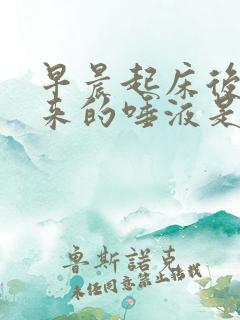 早晨起床後
來的唾液是
魯斯諾克
未经同意禁止转载